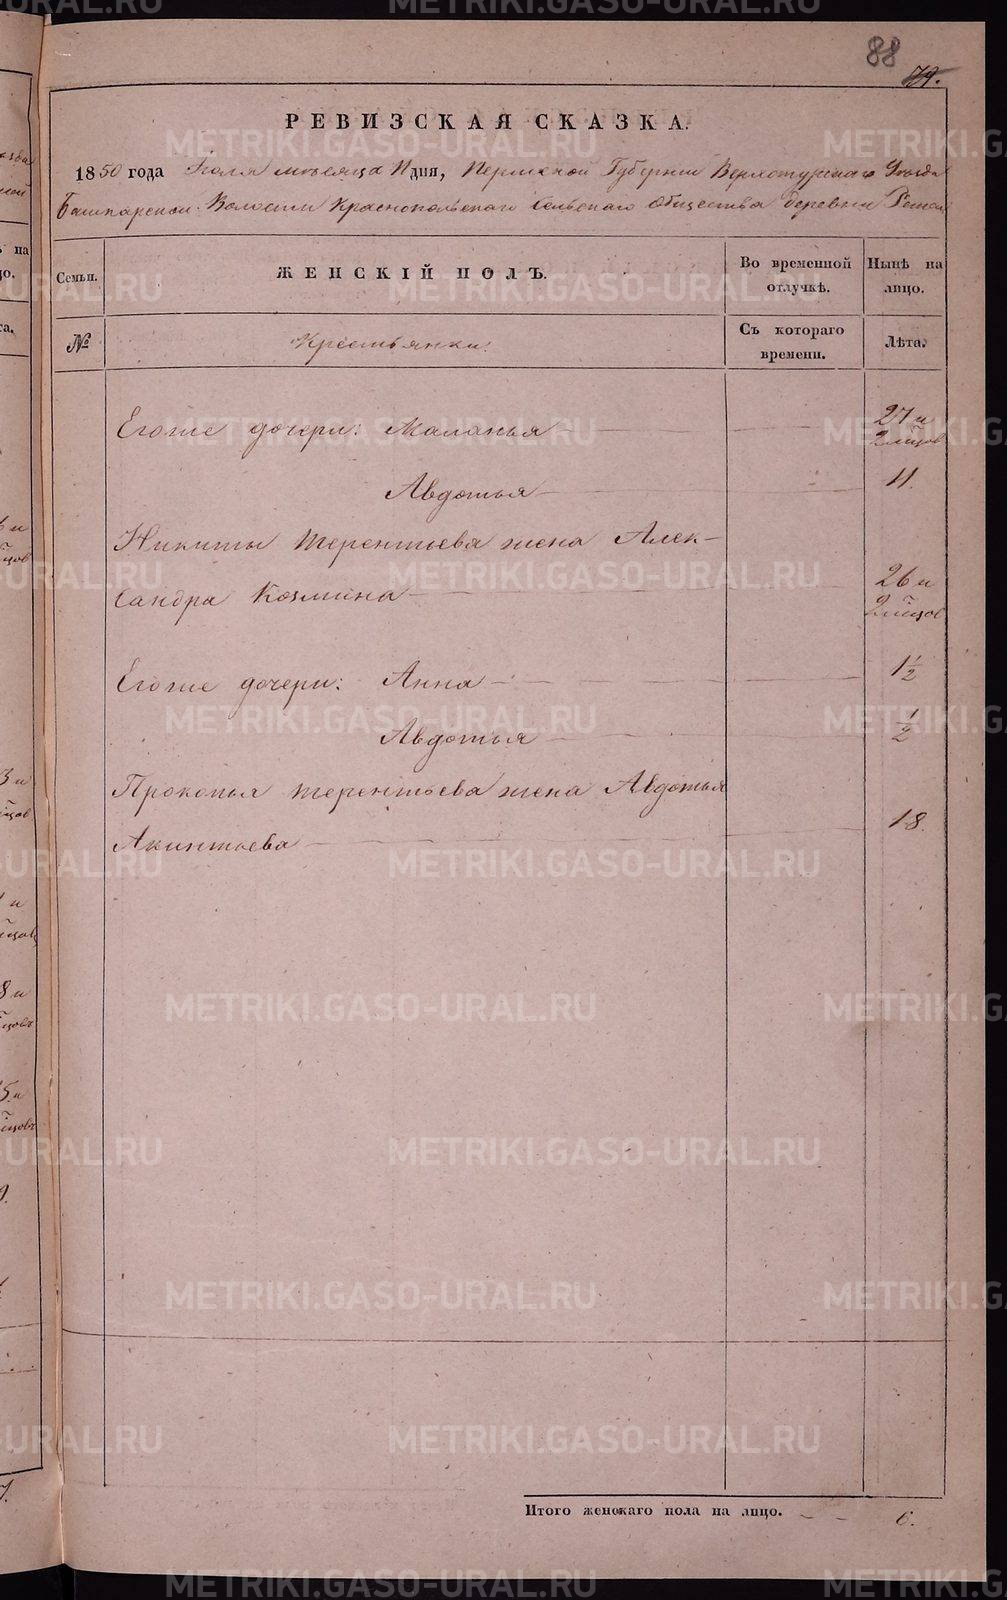 88
79.
РЕВИЗСКАЯ СКАЗКА.
1850 года Іюля месяца 11 дня, Пермской Губерніи Верхотурскаго Уезда
Башкарской Волости Краснопольскаго Сельскаго Общества деревни
Семьи. ЖЕНСКІЙ ПОЛЪ. Во временной отлучкѣ. Нынѣ на лицо.
№ Крестьянки. Съ котораго времени. Лѣта.
Егоже дочери: Маланья 27 и 2 мцов
Авдотья 11.
Никиты Терентьева жена Алек-
сандра Козмина 26 и 2 мцов
Егоже дочери: Анна 1 1/2
Авдотья 1/2
Прокопья Терентьева жена Авдотья
Акинтьева 18.
Итого женскаго пола на лицо. 6.
METRIKI.GASO-URAL.RU